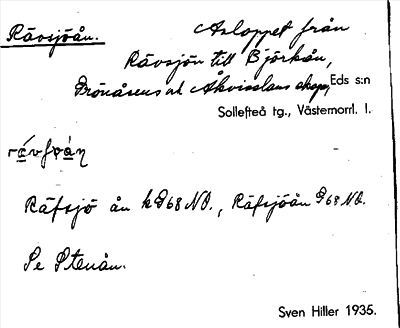 Rävsjöån. Avloppet från
Rävsjön till Björkån,
Grönåsens ut Åkvisslans skog, Eds s:n
Sollefteå tg., Västernorrl. l.
Räfsjö ån kG68NO., Räfsjöån G68NO.
Se Stenån.
Sven Hiller 1935.